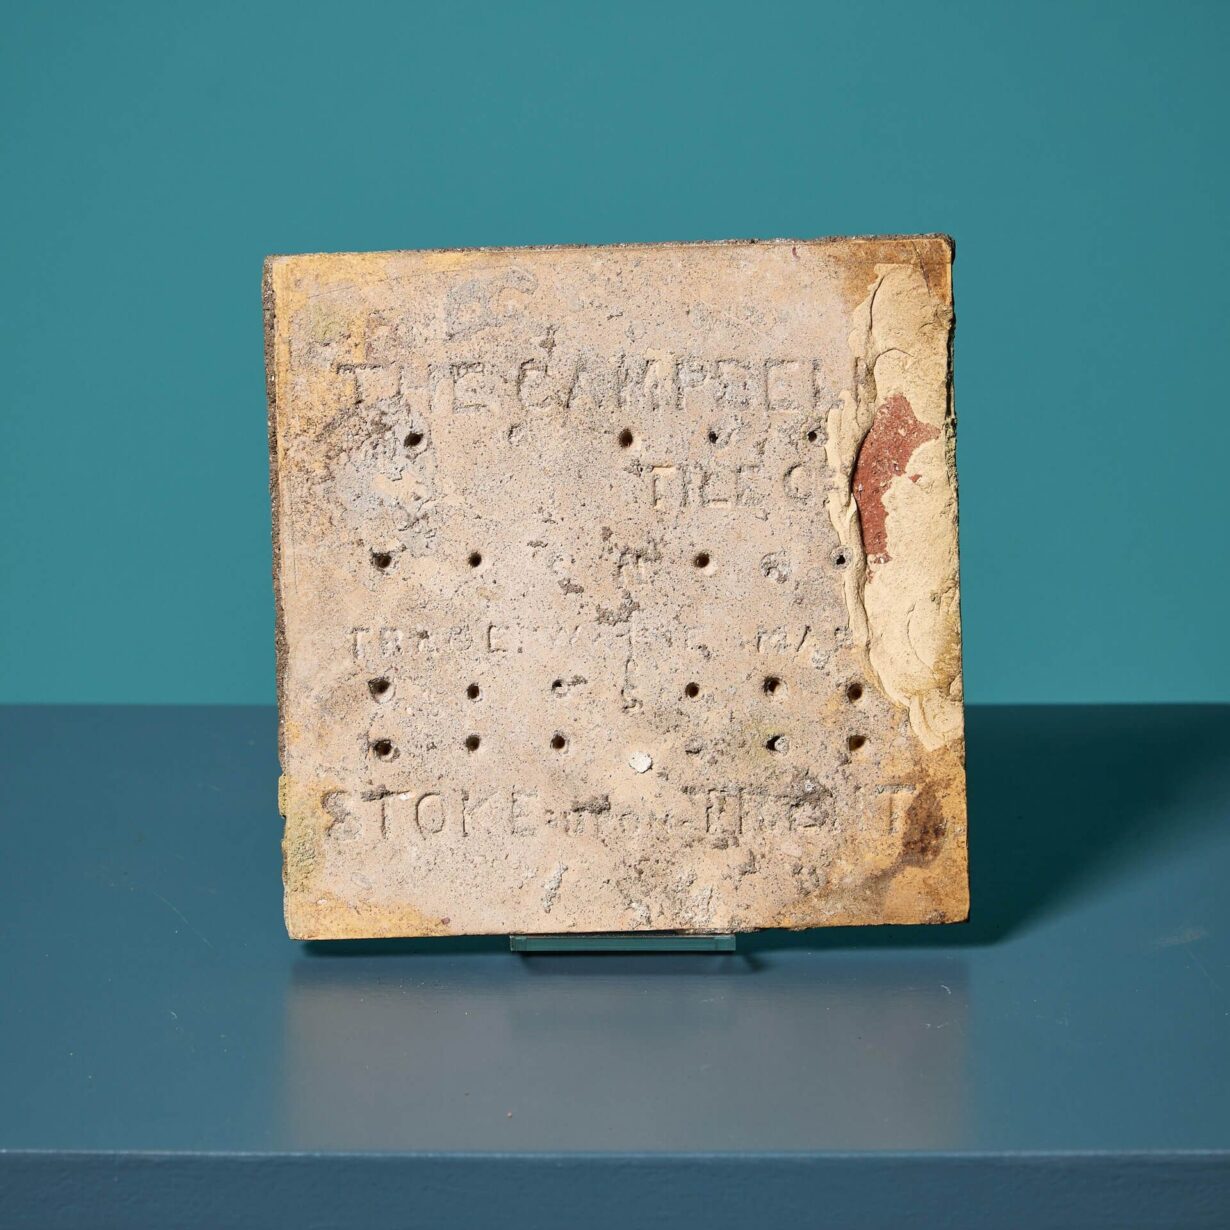 THE CAMPBELL
TILE C
TRADE MAR
STOKE UPON TRENT